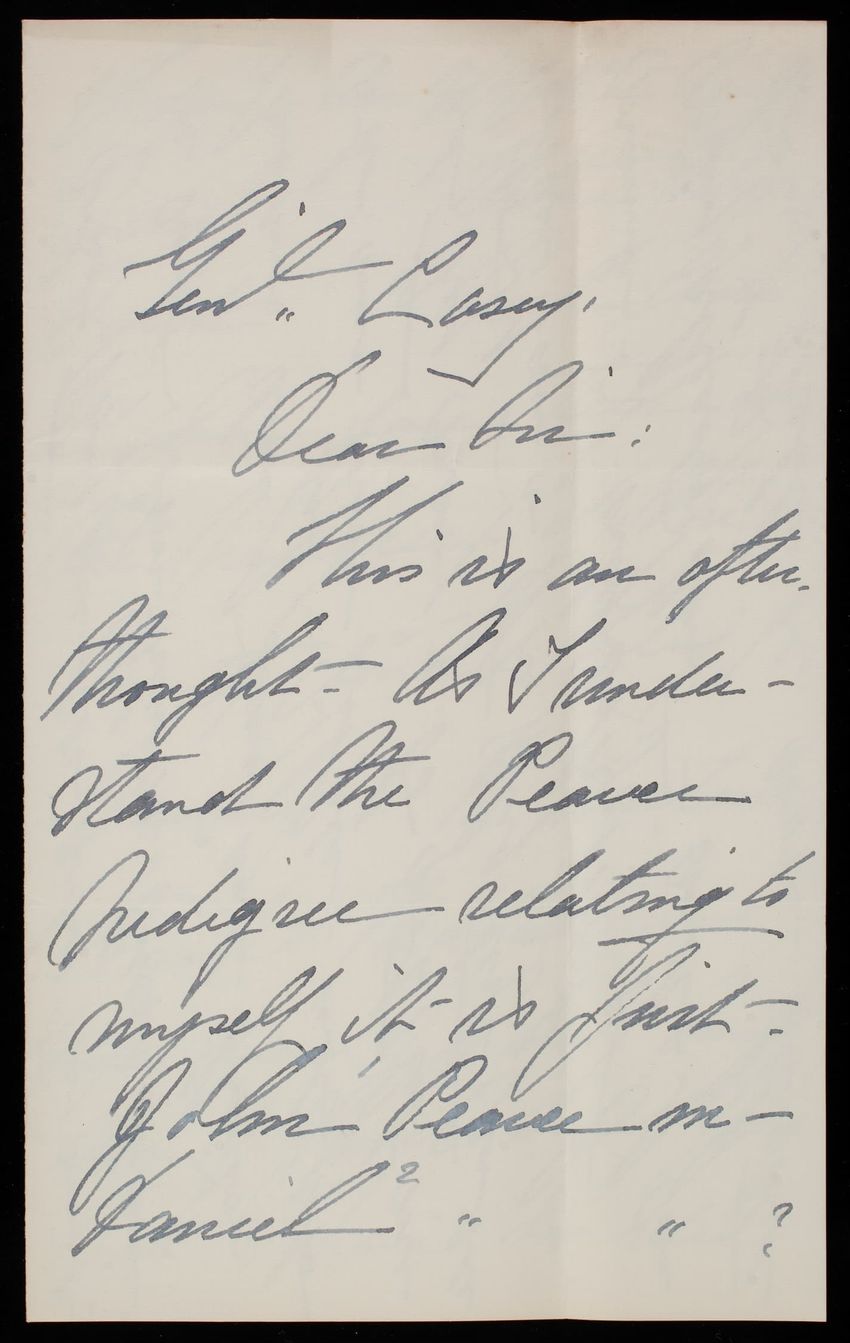 Genl. Casey,
Dear Sir:
This is an after-
thought - As I under-
stand the Pearce
Pedigree relating to
myself, it is first -
John Pearce m -
Daniel 2 " " ?